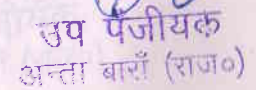 उप पंजीयक
अन्ता बाराँ (राज०)